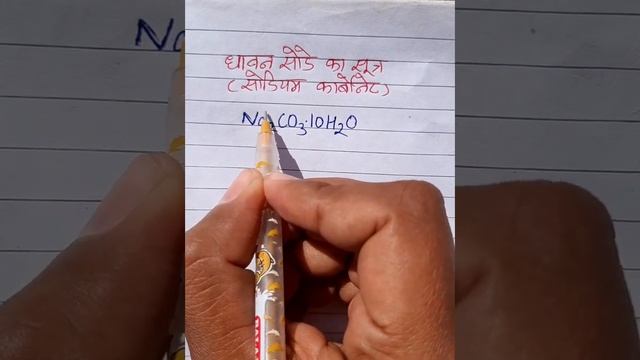 धावन सोडे का सूत्र
(सोडियम कार्बोनेट)
Na₂CO₃·10H₂O